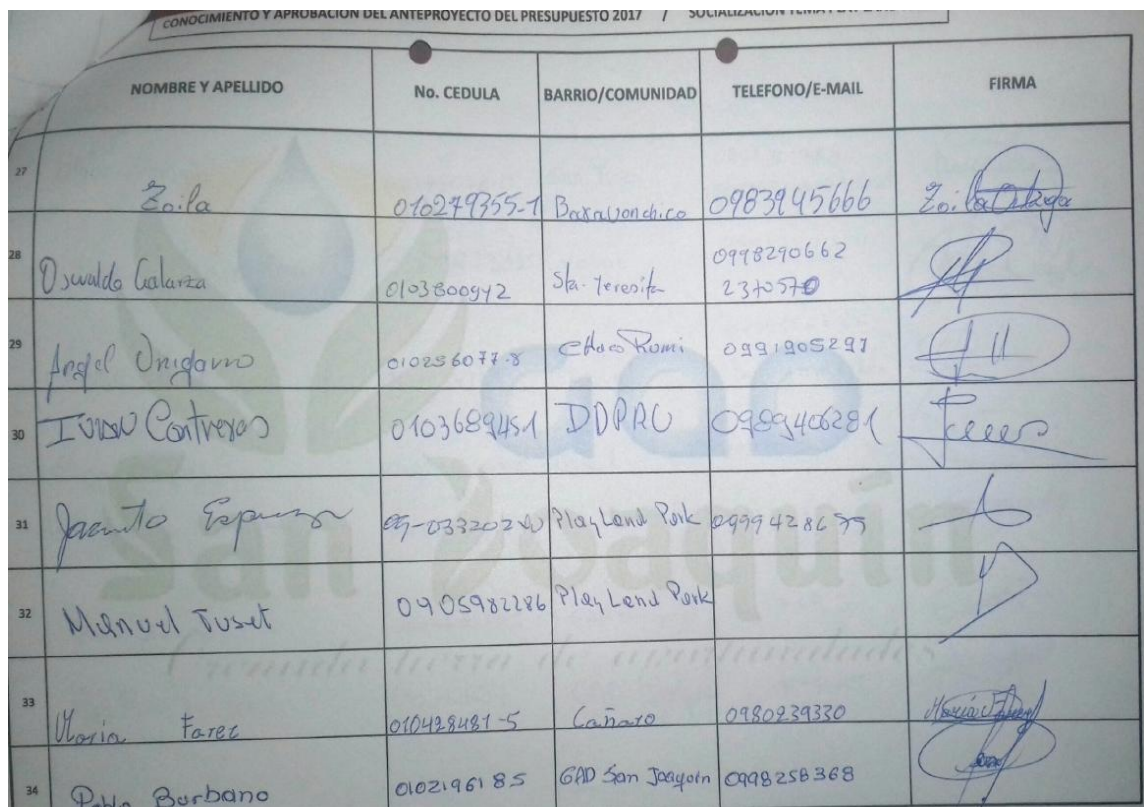 CONOCIMIENTO Y APROBACIÓN DEL ANTEPROYECTO DEL PRESUPUESTO 2017 / SOCIALIZACIÓN TEMA
NOMBRE Y APELLIDO No. CEDULA BARRIO/COMUNIDAD TELEFONO/E-MAIL FIRMA
27 Zoila 010279355-1 Baravonchico 0983945666 Zoila Ortega
28 Oswaldo Galarza 0103800942 Sta. Teresita 0998290662
2370570
29 Angel 010256077-8 Romi 0991905297
30 Contreras 0103689451 DDPRU 0989406281
31 Jacinto Play Land Park
32 Manuel Tuset 0905982286 Play Land Park
33 Maria Farez 010428481-5 Cañaro 0980239330 Maria
34 Pablo Burbano 0102196185 GAD San Joaquin 0998258368
GAD
San Joaquín
tierra de oportunidades